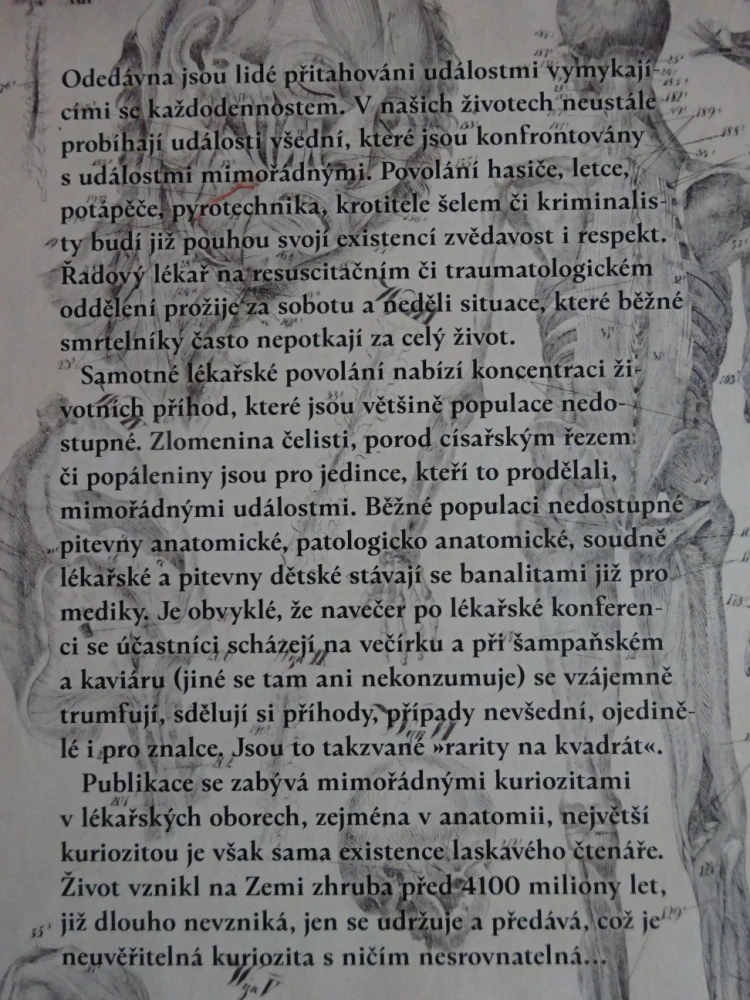 Odedávna jsou lidé přitahováni událostmi vymykají-
cími se každodennostem. V našich životech neustále
probíhají události všední, které jsou konfrontovány
s událostmi mimořádnými. Povolání hasiče, letce,
potápěče, pyrotechnika, krotitele šelem či kriminalis-
ty budí již pouhou svojí existencí zvědavost i respekt.
Řadový lékař na resuscitačním či traumatologickém
oddělení prožije za sobotu a neděli situace, které běžné
smrtelníky často nepotkají za celý život.
Samotné lékařské povolání nabízí koncentraci ži-
votních příhod, které jsou většině populace nedo-
stupné. Zlomenina čelisti, porod císařským řezem
či popáleniny jsou pro jedince, kteří to prodělali,
mimořádnými událostmi. Běžné populaci nedostupné
pitevny anatomické, patologicko anatomické, soudně
lékařské a pitevny dětské stávají se banalitami již pro
mediky. Je obvyklé, že navečer po lékařské konferen-
ci se účastníci scházejí na večírku a při šampaňském
a kaviáru (jiné se tam ani nekonzumuje) se vzájemně
trumfují, sdělují si příhody, případy nevšední, ojedině-
lé i pro znalce. Jsou to takzvané »rarity na kvadrát«.
Publikace se zabývá mimořádnými kuriozitami
v lékařských oborech, zejména v anatomii, největší
kuriozitou je však sama existence laskavého čtenáře.
Život vznikl na Zemi zhruba před 4100 miliony let,
již dlouho nevzniká, jen se udržuje a předává, což je
neuvěřitelná kuriozita s ničím nesrovnatelná...